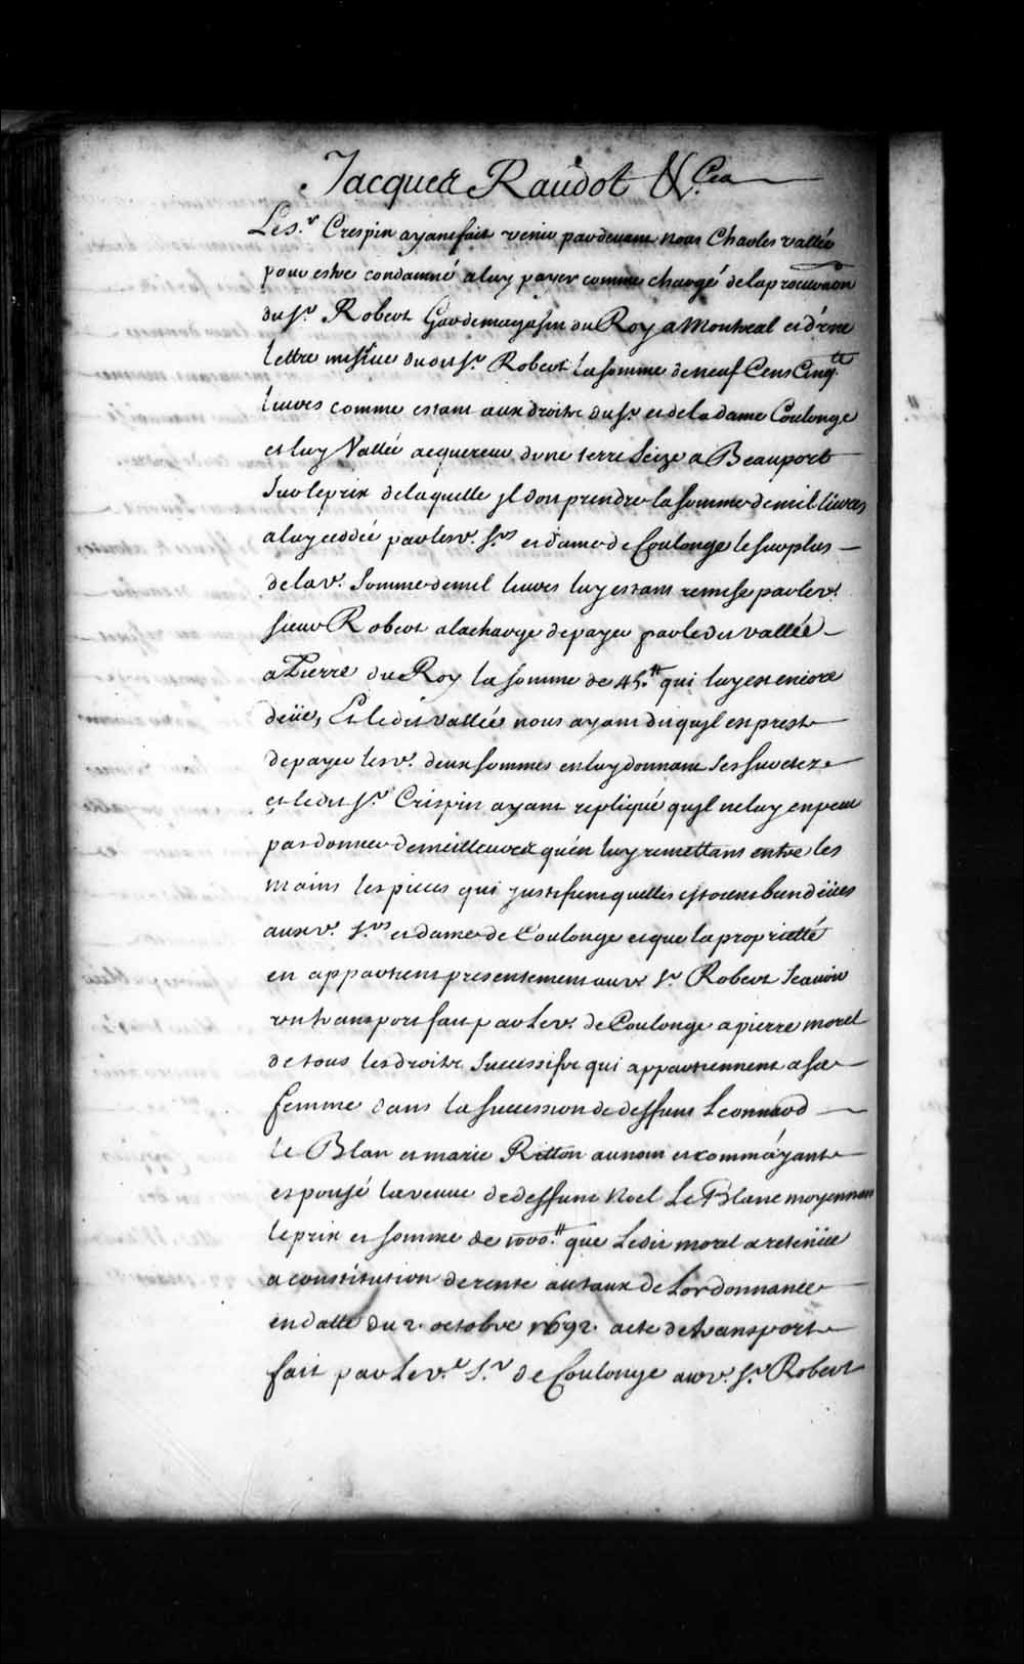 Jacques Raudot &c.ra
Le s.r Crespin ayant fait venir pardevant nous Charles vallée
pour estre condamné a luy payer comme chargé de la procuration
du s.r Robert Gardemagasin du Roy a Montreal et d'une
lettre missive dudit s.r Robert la somme de neuf Cens Cinq.te
livres comme estant aux droits du s.r et de la dame Coulonge
et luy Vallée acquereur d'une terre seize a Beauport
sur le prix de laquelle jl doit prendre la somme de mil livres
a luy cedée par lesd. s.rs et dame de Coulonge le surplus
de lad. somme de mil livres luy estant remise par led.
sieur Robert a la charge de payer par ledit vallée
a Pierre du Roy la somme de 45.tt qui luy est encore
deüe, Et ledit vallée nous ayant dit qu'jl est prest
de payer lesd. deux sommes en luy donnant ses suretez
et ledit s.r Crispin ayant repliqué qu'jl ne luy en peut
pas donner de meilleures qu'en luy remettant entre les
mains les pieces qui justifient quelles estoient bien deües
auxd. s.rs et dame de Coulonge et que la proprietté
en appartient presentement aud. s.r Robert scavoir
un transport fait par led. de Coulonge a pierre morel
de tous les droits successifs qui appartiennent a sa
femme dans la succession de deffunt Leonnard
le Blan et marie Ritton au nom et comm'ayant
espousé la veuve de deffunt Noel Le Blanc moyennant
le prix et somme de 1000.tt que Ledit morel a retenüe
a constitution de rente au taux de Lordonnance
en datte du 2. octobre 1692. acte de transport
fait par led. s.r de Coulonge aud. s.r Robert